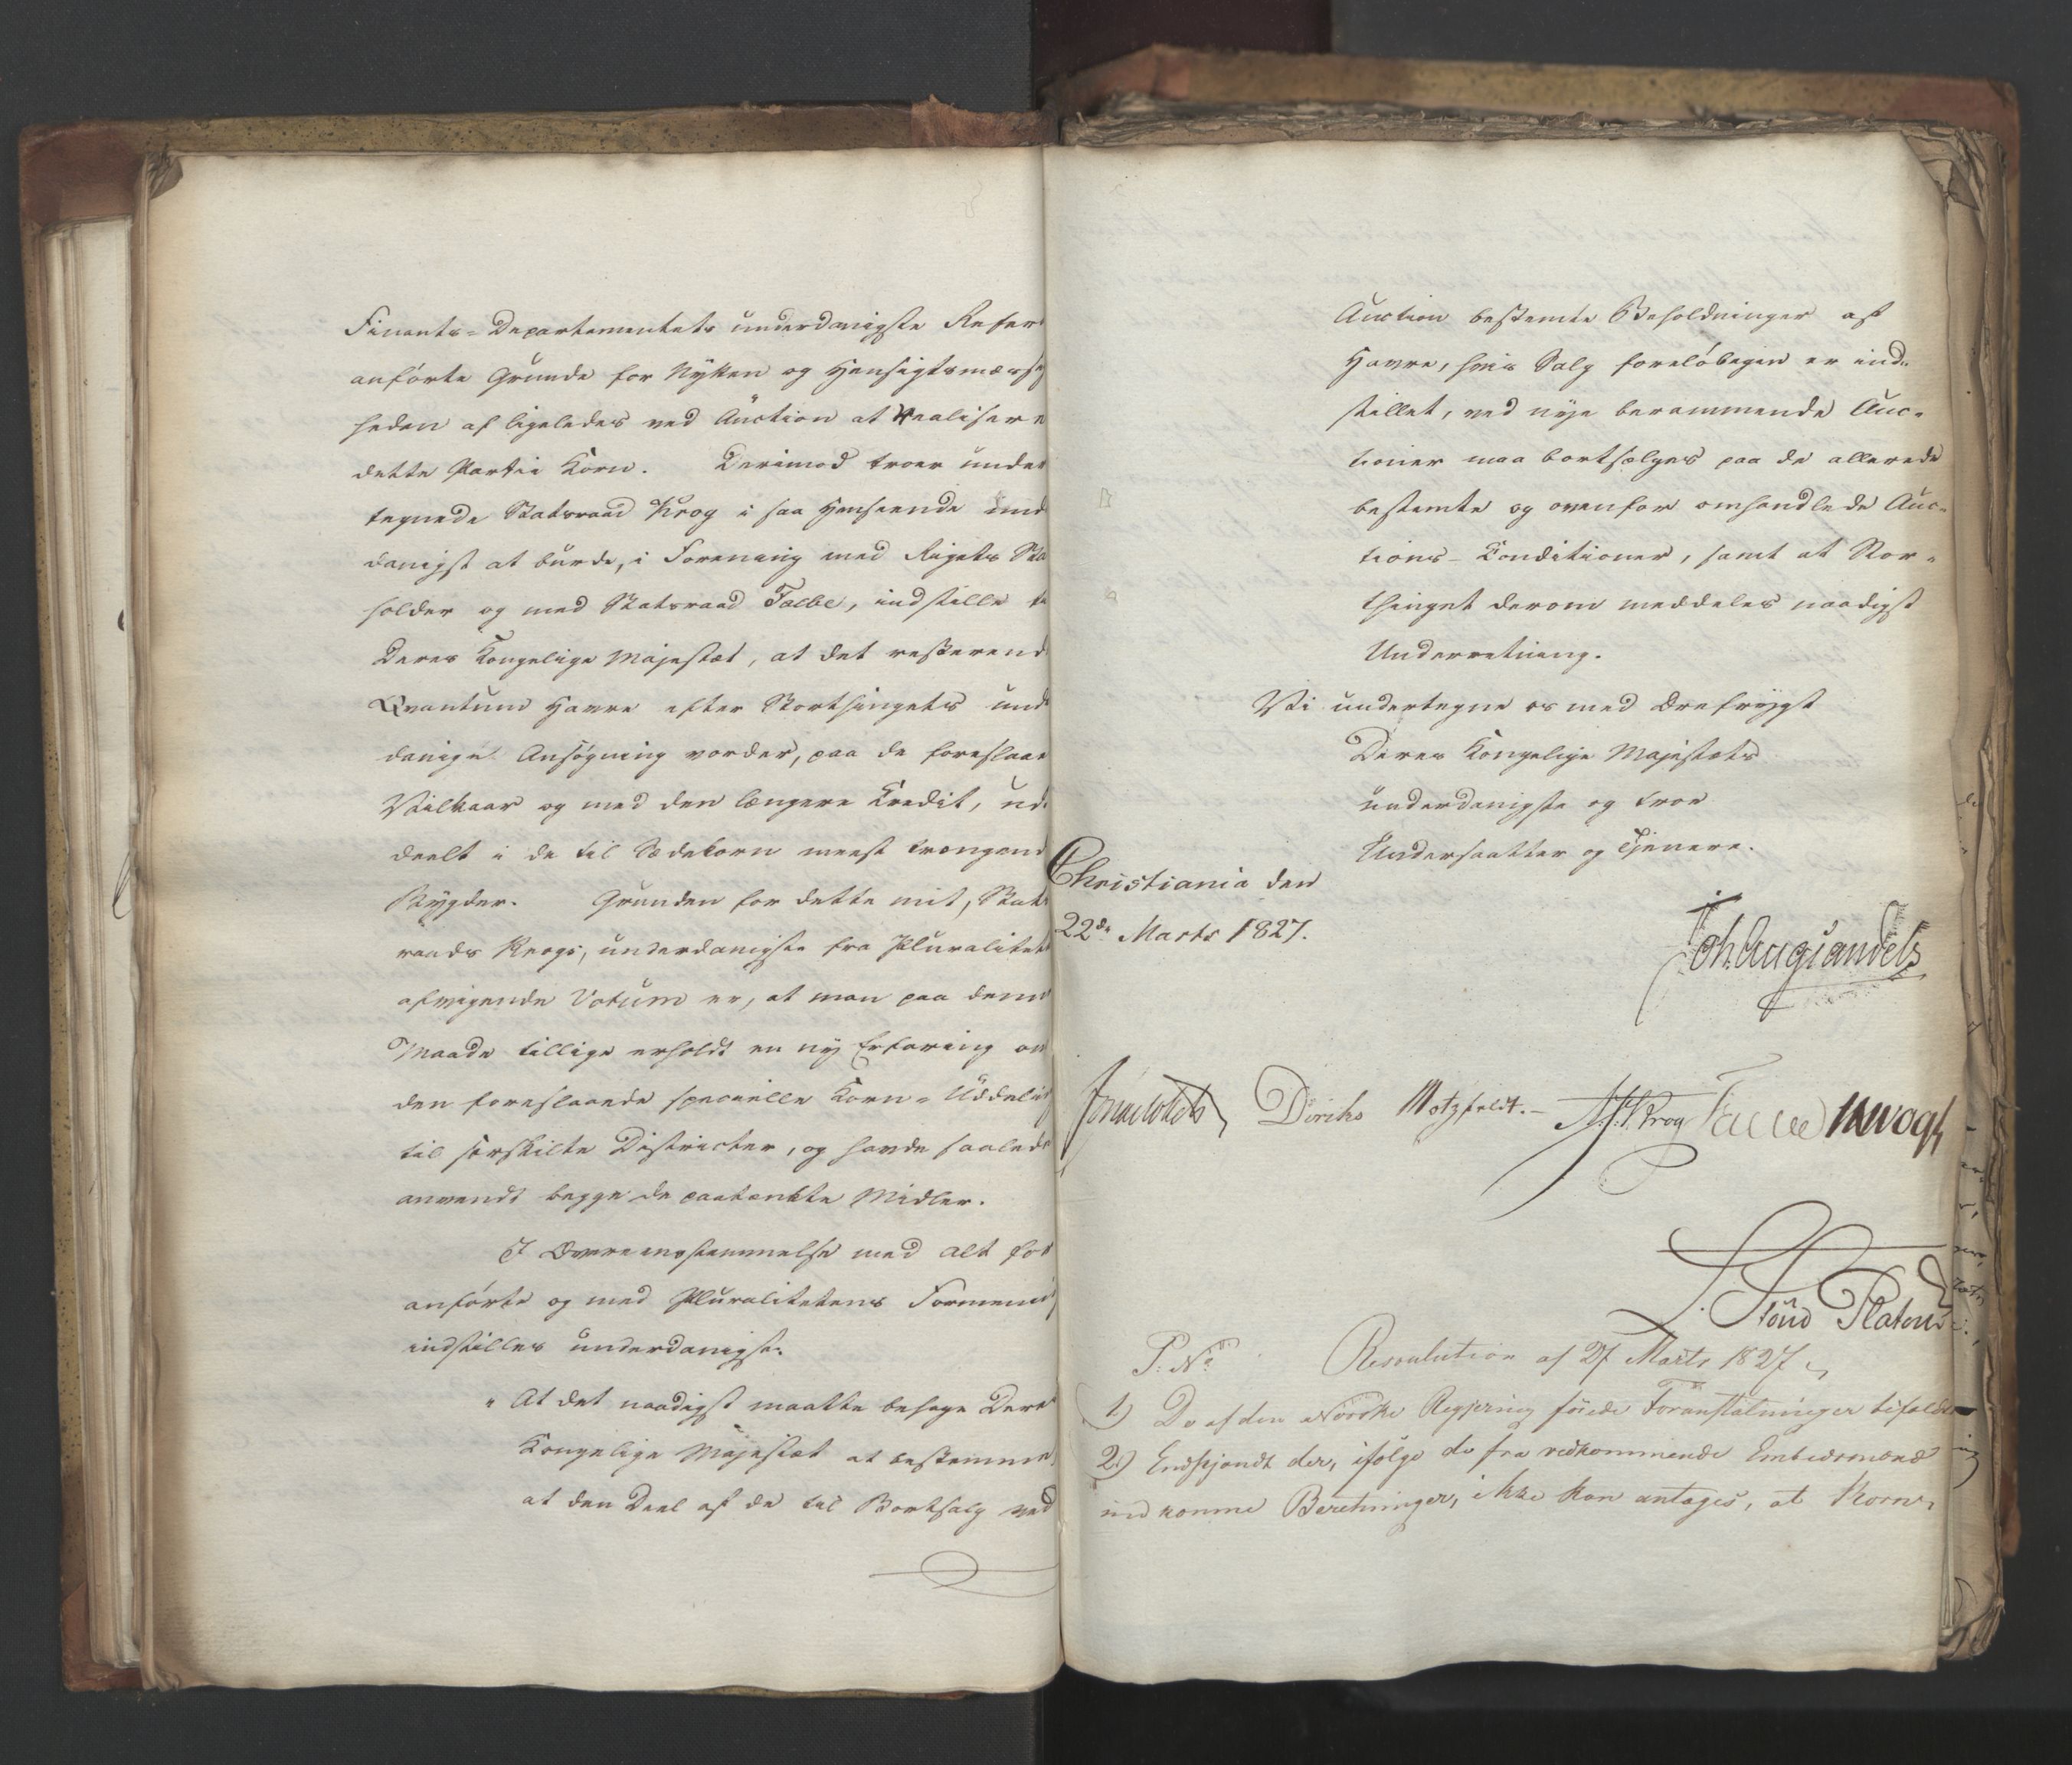 Finants-Departementets underdanigste Refer
anførte Grunde for Nytten og Hensigtsmæssig
heden af ligeledes ved Auction at realisere
dette Partie Korn. Derimod troer under
tegnede Statsraad Krog i saa Henseende und
danigst at burde, i Forening med Rigets Sta
holder og med Statsraad Falbe, indstille ti
Deres Kongelige Majestæt, at det resterend
Qvantum Havre efter Storthingets und
danige Ansøgning vorder, paa de foreslaae
Vilkaar og med den længere Credit, ud
deelt i de til Sædekorn meest trængend
Bygder. Grunden for dette mit, Stats
raads Krogs, underdanigste fra Pluralitet
afvigende Votum er, at man paa denne
Maade tillige erholdt en ny Erfaring om
den foreslaaede specielle Korn-Uddeling
til særskilte Districter, og havde saalede
anvendt begge de paatænkte Midler.
I Overeensstemmelse med alt for
anførte og med Pluralitetens Formening
indstilles underdanigst:
" At det naadigst maatte behage Deres
Kongelige Majestæt at bestemme,
at den Deel af de til Bortsalg ved
Auction bestemte Beholdninger af
Havre, hvis Salg foreløbigen er ind-
stillet, ved nye berammende Auc-
tioner maa bortsælges paa de allerede
bestemte og ovenfor omhandlede Auc-
tions-Conditioner, samt at Stor-
thinget derom meddeles naadigst
Underretning.
Vi undertegne os med Ærefrygt
Deres Kongelige Majestæts
underdanigste og troe
Undersaatter og Tjenere.
Christiania den
22de Marts 1827.
Joh. Aug. Sandels
Diriks Motzfeldt. Krog
P. No
Resolution af 27 Marts 1827
1) De af den Norske Regjering føiede Foranstaltninger bifaldes
2) Endskjøndt der, ifølge de fra vedkommende Embedsmænd
indkomne Beretninger, ikke kan antages, at Korn-